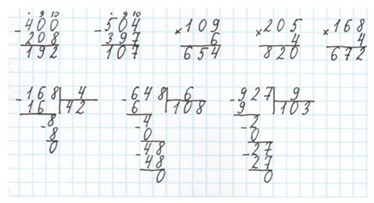 9 10 9 10
- 400 - 504 × 109 × 205 × 168
208 397 6 4 4
192 107 654 820 672
- 168 4 - 648 6 - 927 9
16 42 6 108 9 103
- 8 - 4 - 2
8 0 0
0 - 48 - 27
48 27
0 0